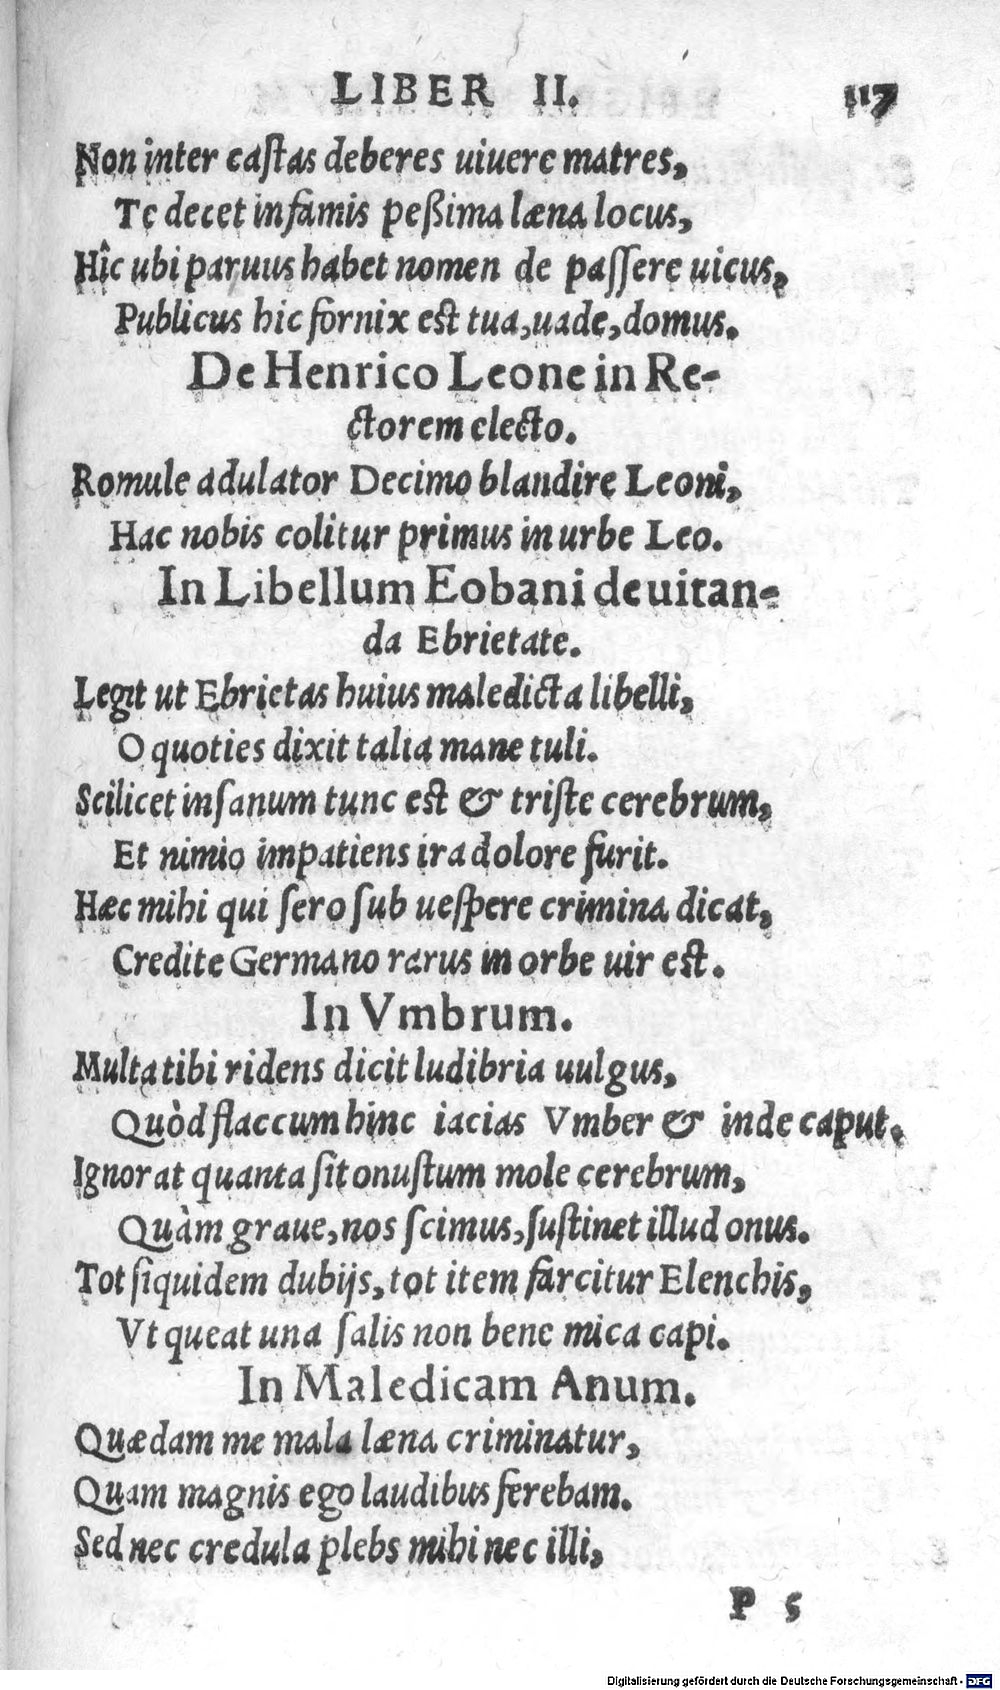 LIBER II. 117
Non inter castas deberes uiuere matres,
Te decet infamis peßima læna locus,
Hîc ubi paruus habet nomen de passere uicus,
Publicus hic fornix est tua, uade, domus.
De Henrico Leone in Re-
ctorem electo.
Romule adulator Decimo blandire Leoni,
Hac nobis colitur primus in urbe Leo.
In Libellum Eobani de uitan-
da Ebrietate.
Legit ut Ebrietas huius maledicta libelli,
O quoties dixit talia mane tuli.
Scilicet insanum tunc est & triste cerebrum,
Et nimio impatiens ira dolore furit.
Hæc mihi qui sero sub uespere crimina dicat,
Credite Germano rarus in orbe uir est.
In Vmbrum.
Multa tibi ridens dicit ludibria uulgus,
Quòd flaccum hinc iacias Vmber & inde caput.
Ignorat quanta sit onustum mole cerebrum,
Quàm graue, nos scimus, sustinet illud onus.
Tot siquidem dubijs, tot item farcitur Elenchis,
Vt queat una salis non bene mica capi.
In Maledicam Anum.
Quædam me mala læna criminatur,
Quam magnis ego laudibus ferebam.
Sed nec credula plebs mihi nec illi,
P 5
Digitalisierung gefördert durch die Deutsche Forschungsgemeinschaft - DFG